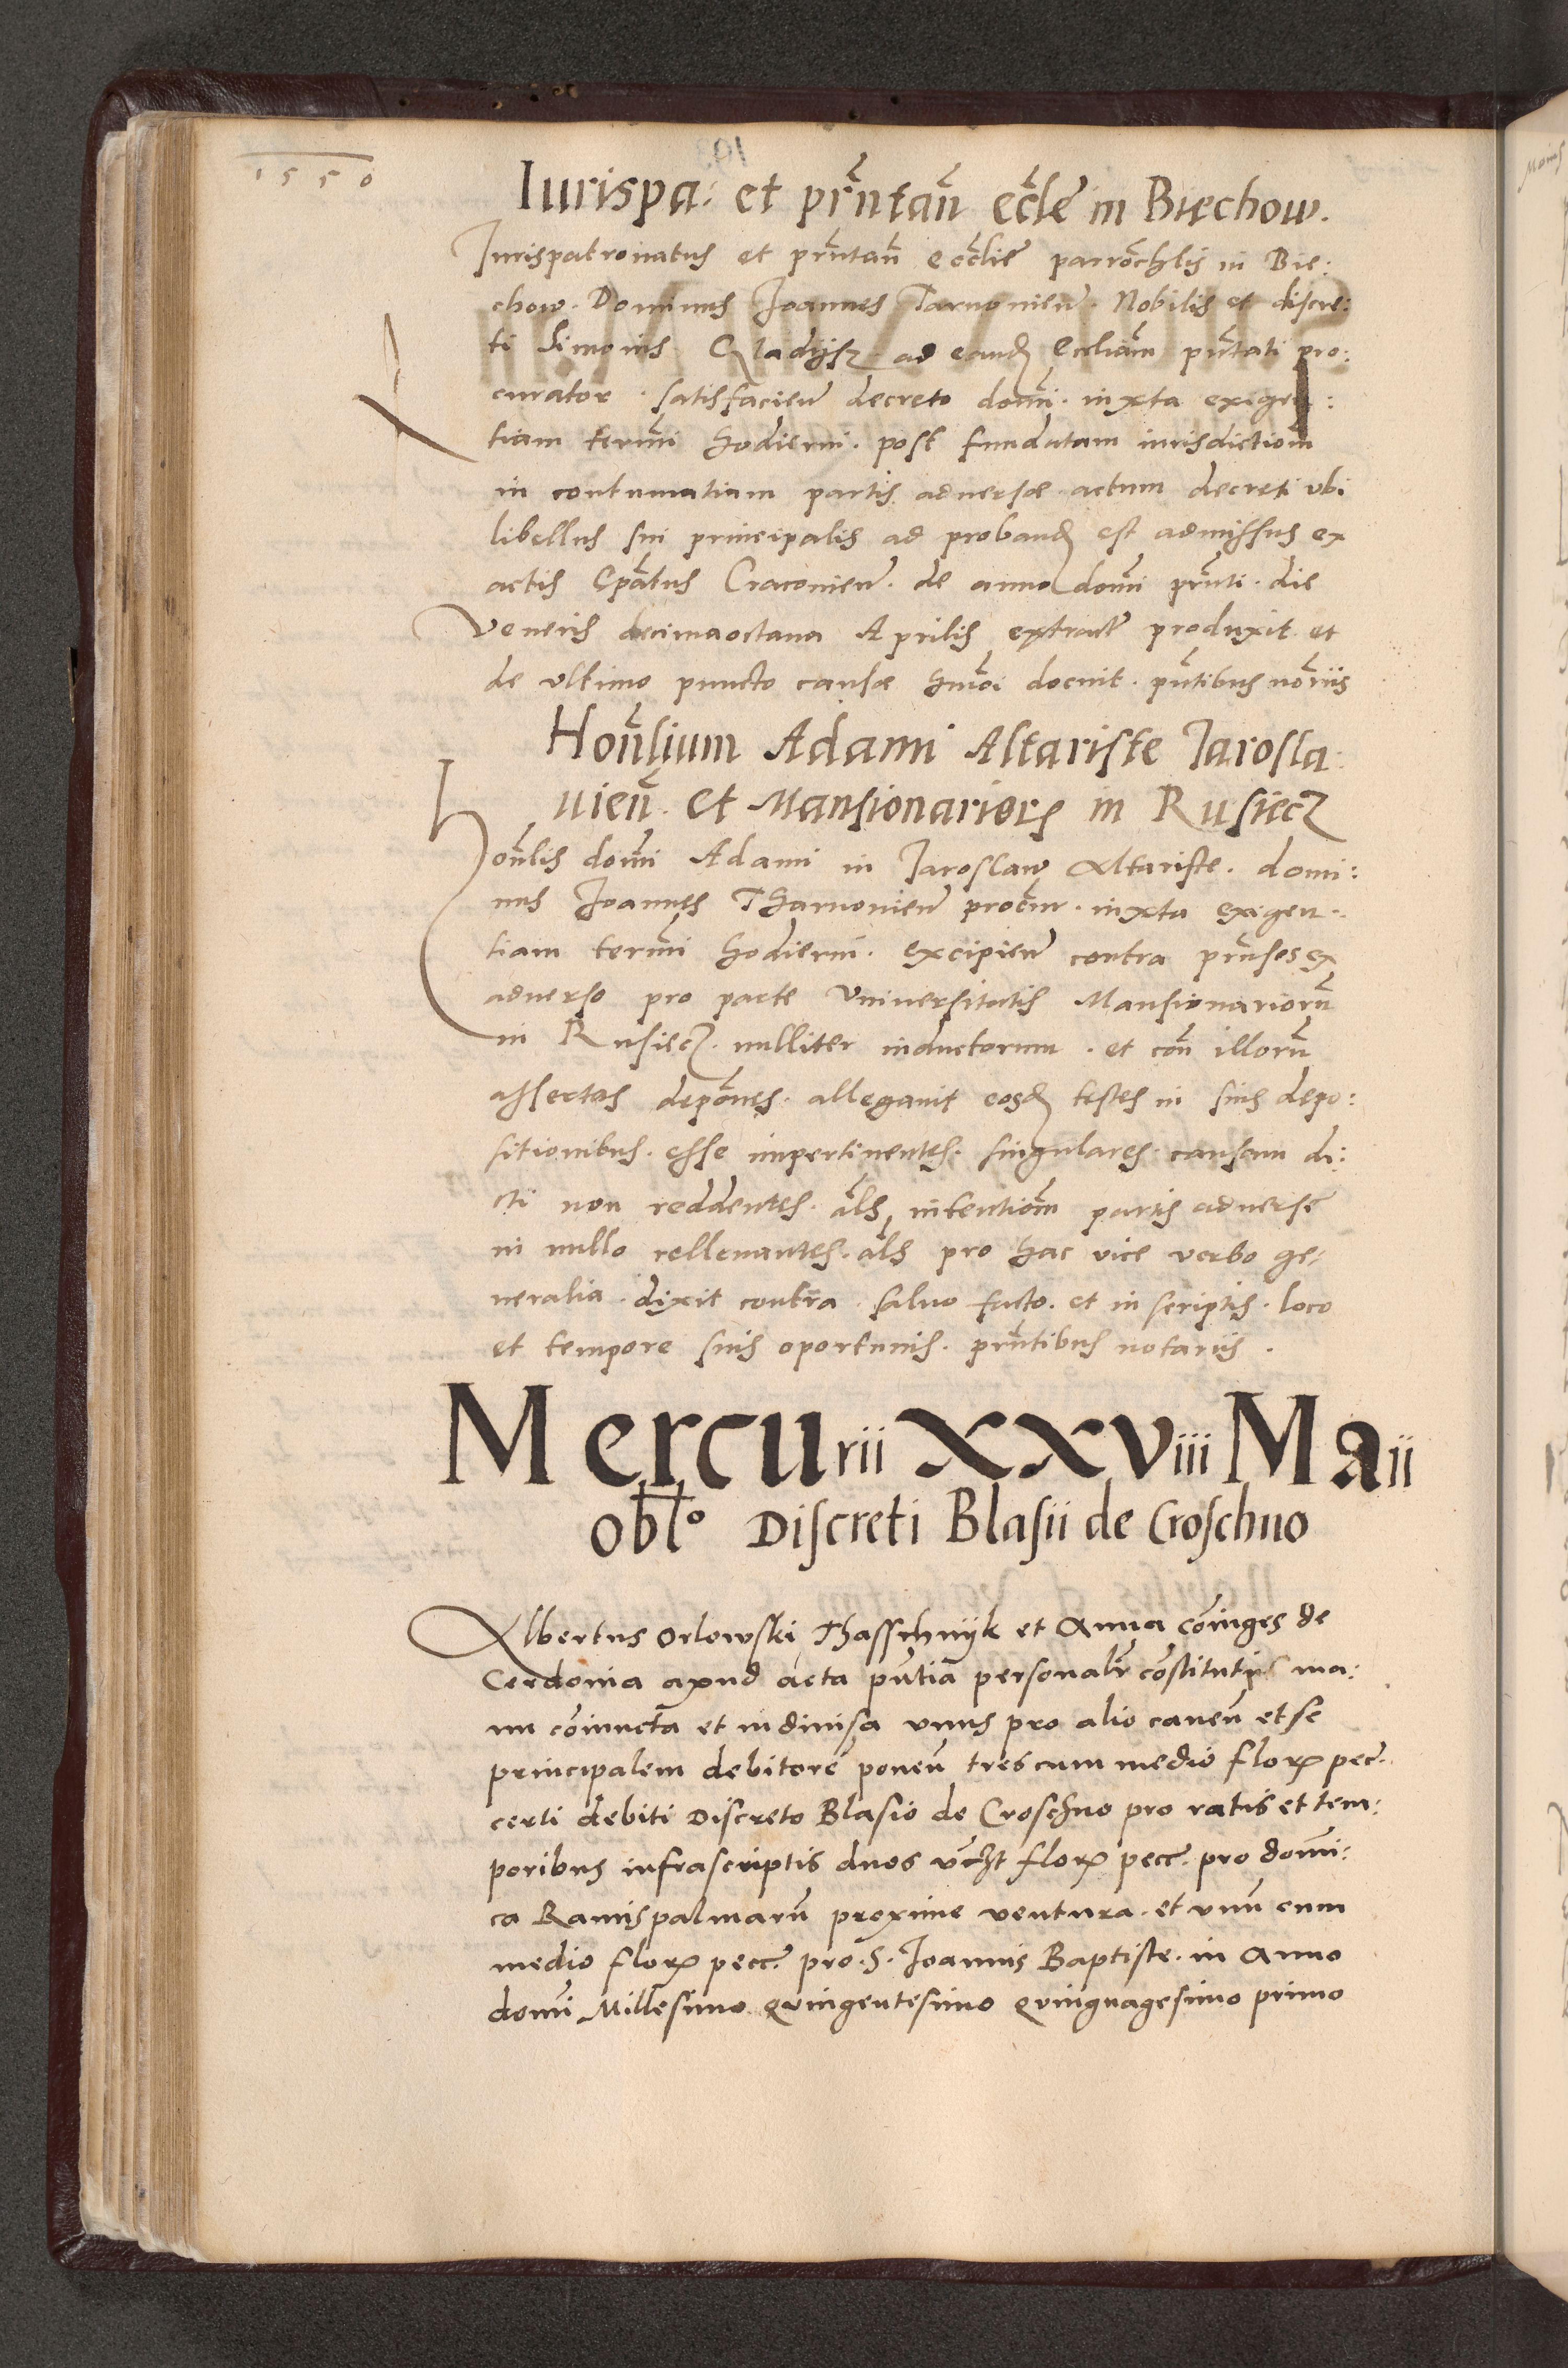 1550
Iurispa: et pr̃ntañ ecc̃le᷑ in Biechow.
Jurispatronatus et pr̃ntañ eccl̃ie᷑ parroc̃hlis in Bie:
chow. Dominus Joannes Tarnowien̄. Nobilis et discre:
ti Simonis ad eand̄ Eccliam̃ pñtati pro:
curator. satisfacien̄ decreto domĩ. iuxta exigen:
tiam termĩ hodierni. post fundatam iurisdictiom̃
in contumatiam partis adversæ actum decreti ubi
libellus sui principalis ad proband̄ est admissus ex
actis Ep̃atus Cracovien̄. de anno domĩ pr̃nti. die
Veneris decimaoctava Aprilis extract̄ produxit et
de ultimo puncto causæ hmõi docuit. pñtibus nõriis
Hoñlium Adami Altariste Jarosla
vieñ. et Mansionarioꝝ in Rusiecz
Hoñlis domĩ Adami in Jaroslaw Altariste. domi:
nus Joannes Tharnowien̄ proc̃ur. iuxta exigen.
tiam termĩ hodierni. excipien̄ contra pr̃nses ex
adverso pro parte Universitatis Mansionariorũ
in Rusiecz. nulliter inductorum. et coñ illorũ
assertas depõnes. allegavit eosd̄ testes in suis depo:
sitionibus. esse impertinentes. singulares. causam di:
cti non reddentes. al̃s intentiom̃ partis adverse᷑
in nullo rellevantes. al̃s pro hac vice verbo ge:
neralia. dixit contra. salvo facto. et in scriptis. loco
et tempore suis oportunis. pr̃ntibus notariis.
Mercurii XXViii Maii
obl° Discreti Blasii de Croschno
Albertus Orlowski Thasschnijk et Anna cõiuges de
Cerdonia apud acta pñtia personalr̃ cõstituti ma:
nu cõiuncta et indivisa unus pro alio caveñ et se
principalem debitorē poneñ tres cum medio floꝝ pec̃.
certi debiti Discreto Blasio de Croschno pro ratis et tem:
poribus infrascriptis duos vc̃ht floꝝ pecc̃. pro domĩ:
ca Ramispalmarũ proxime ventura. et unũ cum
medio floꝝ pecc̃ pro. S. Joannis Baptiste. in Anno
domĩ Millesimo quingentesimo quinquagesimo primo